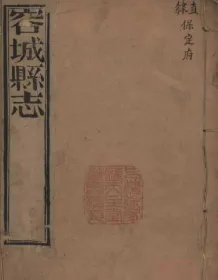 直隸保定府
容城縣志